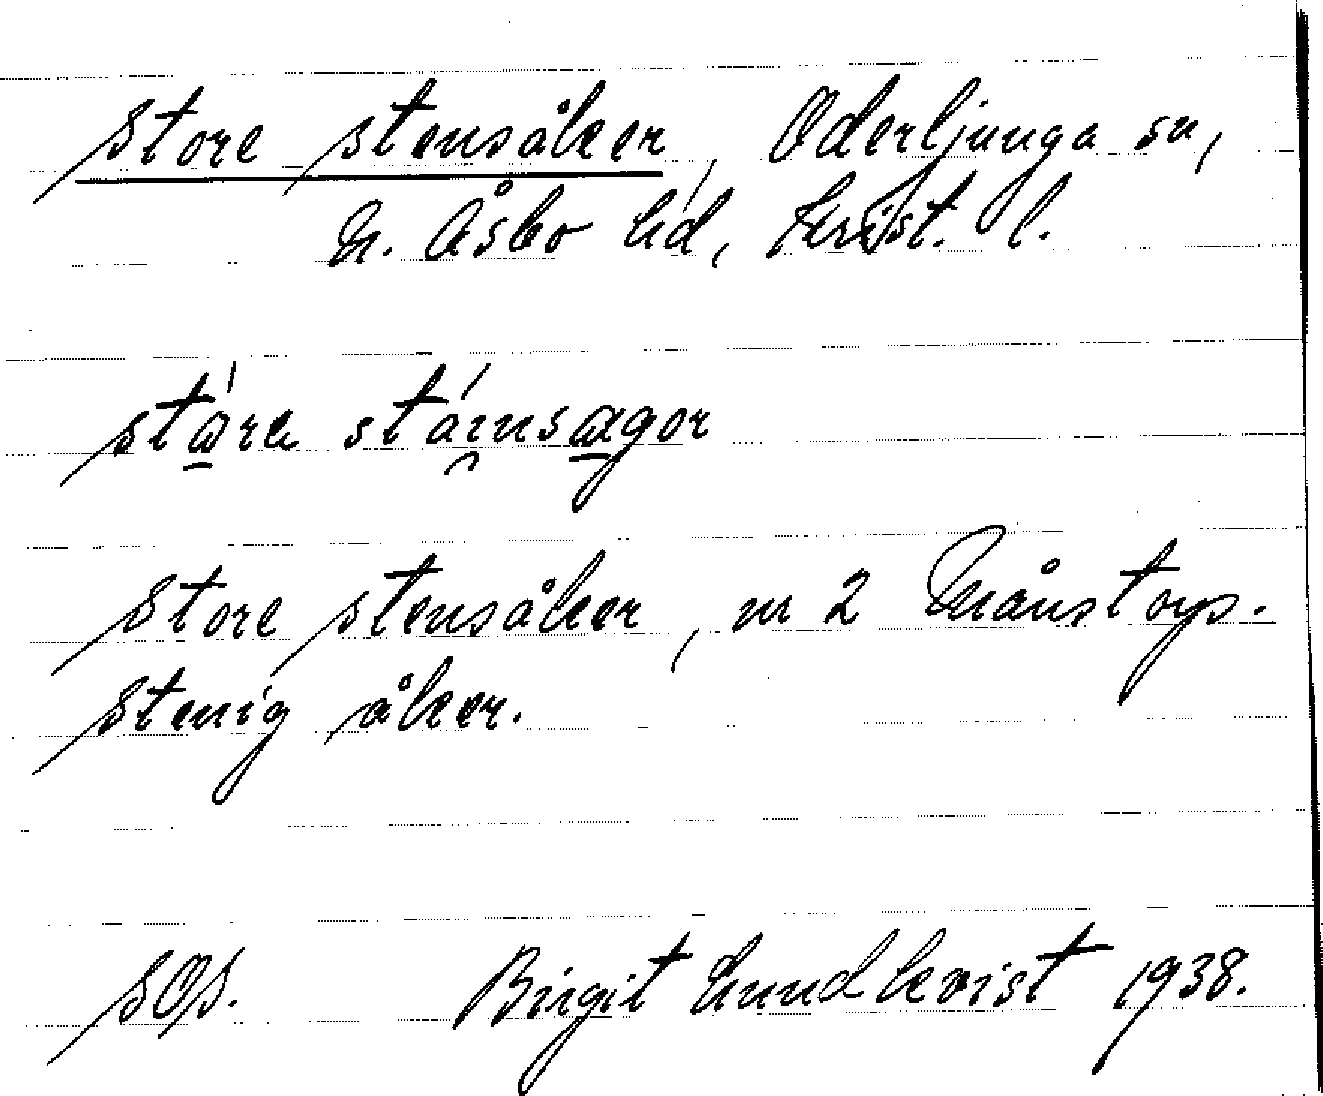 Store stensåker, Oderljunga sn,
N. Åsbo hd, Krist. l.
stare stainsagor
Store stensåker, nr 2 Månstorp.
Stenig åker.
SOS. Birgit Lundkvist 1938.